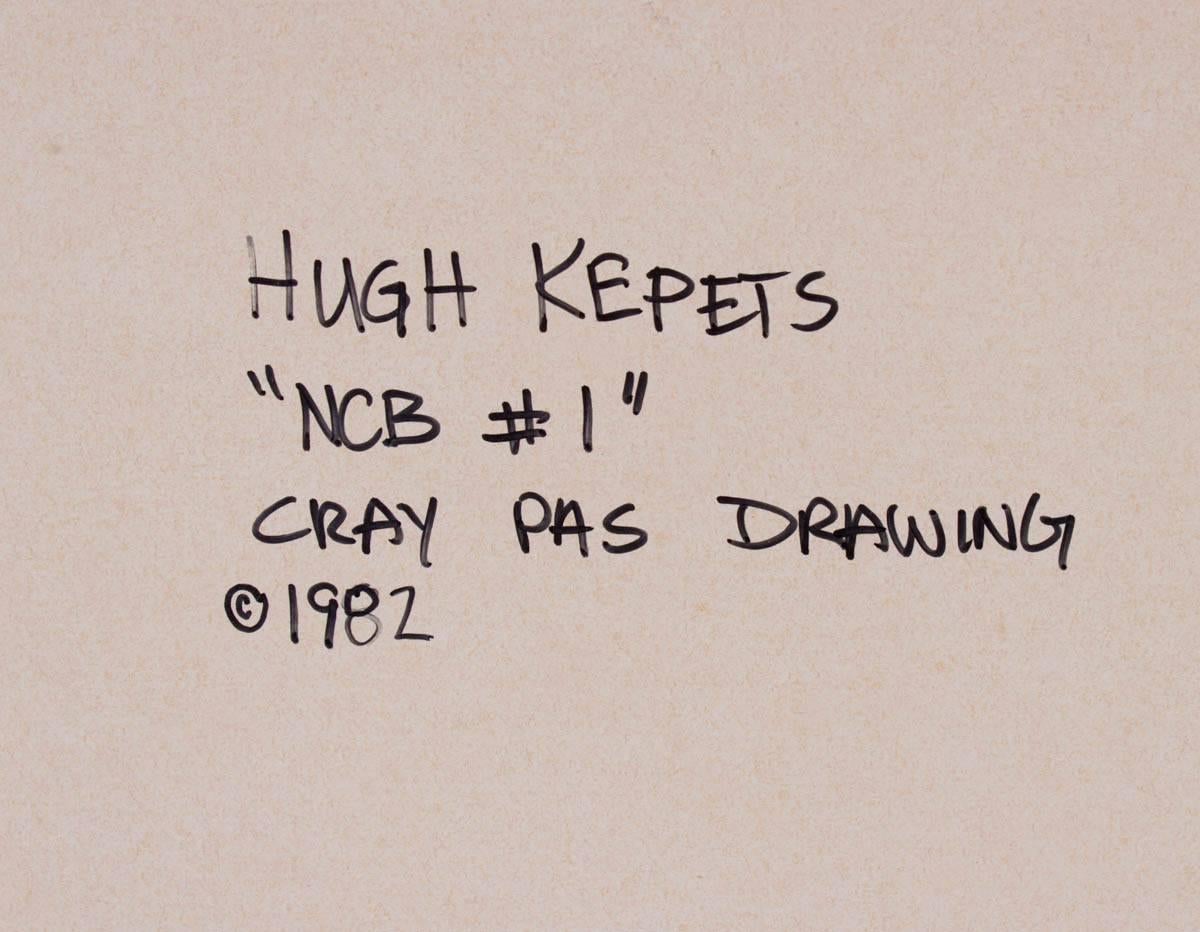 HUGH KEPETS
"NCB #1"
CRAY PAS DRAWING
©1982